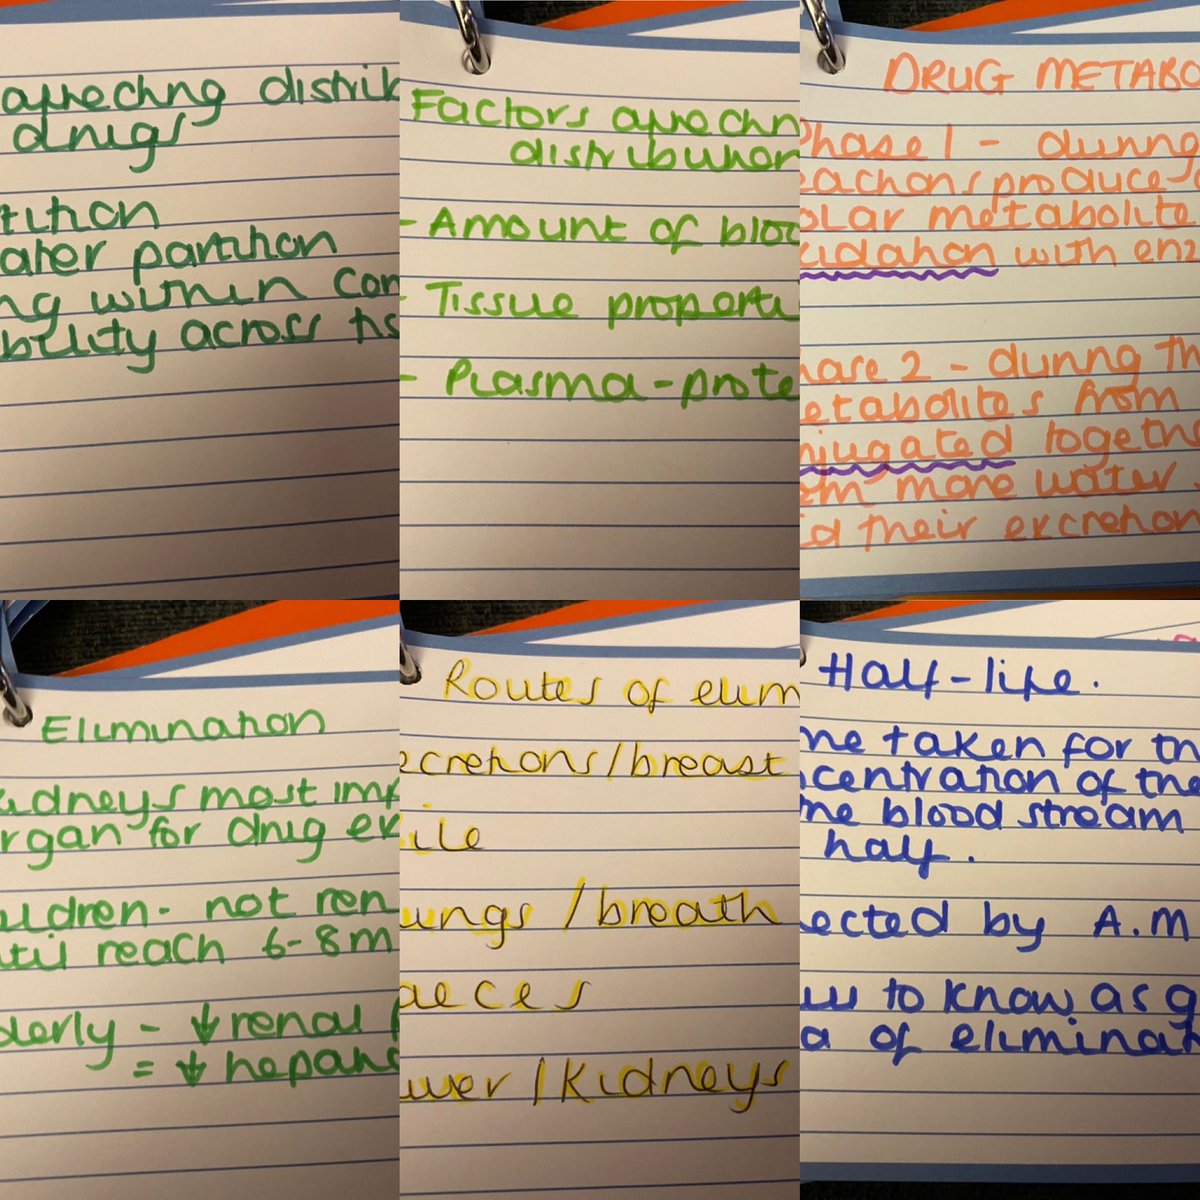 affecting distrib
drugs
tition
ater partition
ng within com
bility across tis
Factors affectin
distribution
- Amount of bloo
- Tissue properti
- Plasma-prote
DRUG METABO
Phase 1 - during
eactions produce
olar metabolite
xidation with enz
hase 2 - during th
etabolites from
njugated togethe
rm more water s
id their excretion
Elimination
kidneys most imp
rgan for drug ex
ildren - not ren
til reach 6-8m
derly - ↓ renal
= ↓ hepatic
Routes of elim
ecretions/breast
ile
ungs / breath
aeces
iver / Kidneys
Half-life.
me taken for th
ncentration of the
he blood stream
half.
ected by A.M
to know as g
a of eliminat